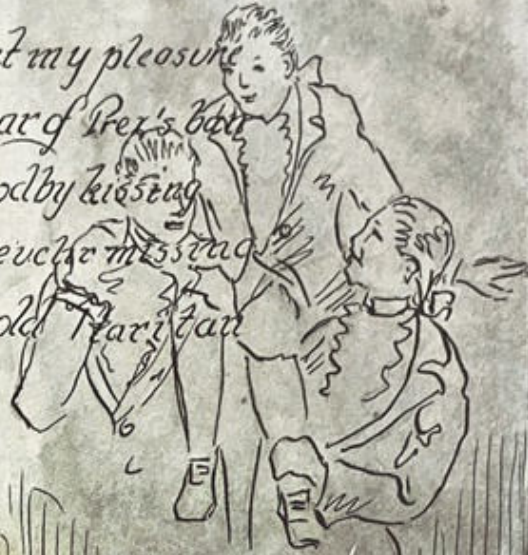 et my pleasure
ar of Prex's ban
odby kissing
euchr missing
old Haritan